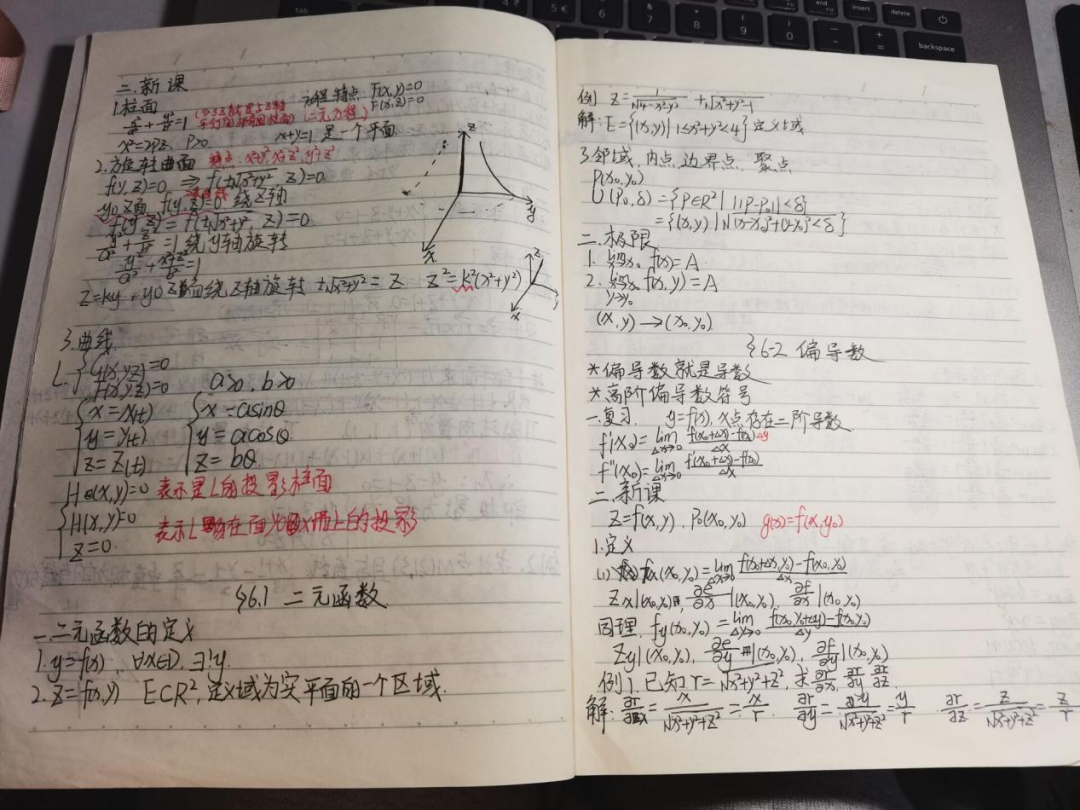 二.新课
1.柱面 方程特点:F(x,y)=0
F(x,z)=0
(二元方程)
x²=2Pz, P>0 x+y=1 是一个平面
2.旋转曲面 特点:x²+y², x²+z², y²+z²
f(y,z)=0 ⇒ f(±√x²+y², z)=0
yoz面 f(y,z)=0 绕z轴
f(y,z)=f(±√x²+y², z)=0
y²/a²+z²/b²=1 绕y轴旋转
y²/a²+x²+z²/b²=1
z=ky 绕z轴旋转 ±√x²+y²=z z²=k²(x²+y²)
z
y
x
z
y
x
3.曲线
L:{G(x,y,z)=0
F(x,y,z)=0 a>0, b>0
{x=x(t) {x=asinθ
y=y(t) y=acosθ
z=z(t) z=bθ
H(x,y)=0 表示是L的投影柱面
{H(x,y)=0 表示L 在面xoy 上的投影
z=0.
§6.1 二元函数
一.二元函数的定义
1.y=f(x) ∀x∈D, ∃!y.
2.z=f(x,y) E⊂R², 定义域为实平面的一个区域.
例 z=1/√4-x²-y² +√x²+y²-1
解:E={(x,y)|1≤x²+y²<4} 定义域
3.邻域,内点,边界点,聚点
P(x₀,y₀)
U(P₀,δ)={P∈R²| ||P-P₀||<δ}
={(x,y)|√(x-x₀)²+(y-y₀)²<δ}
二.极限
1. lim x→x₀ f(x)=A
2. lim x→x₀ f(x,y)=A
y→y₀
(x,y)→(x₀,y₀)
§6-2 偏导数
*偏导数就是导数
*高阶偏导数符号
一.复习. y=f(x), x点存在二阶导数
f'(x₀)=lim Δx→0 f(x₀+Δx)-f(x₀)/Δx Δy
f''(x₀)=lim Δx→0 f'(x₀+Δx)-f'(x₀)/Δx
二.新课
z=f(x,y), P₀(x₀,y₀) g(x)=f(x,y₀)
1.定义
(1) fx(x₀,y₀)=lim Δx→0 f(x₀+Δx,y₀)-f(x₀,y₀)/Δx
Zx|(x₀,y₀), ∂z/∂x|(x₀,y₀), ∂f/∂x|(x₀,y₀)
同理, fy(x₀,y₀)=lim Δy→0 f(x₀,y₀+Δy)-f(x₀,y₀)/Δy
Zy|(x₀,y₀), ∂z/∂y|(x₀,y₀), ∂f/∂y|(x₀,y₀)
例1.已知r=√x²+y²+z², 求∂r/∂x, ∂r/∂y, ∂r/∂z.
解:∂r/∂x=x/√x²+y²+z²=x/r, ∂r/∂y=y/√x²+y²+z²=y/r ∂r/∂z=z/√x²+y²+z²=z/r